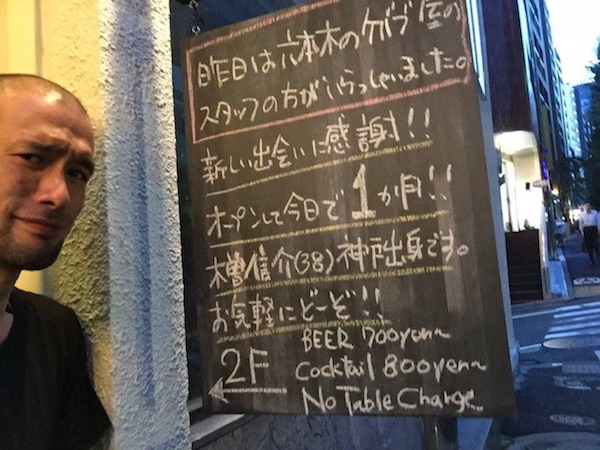 昨日は六本木のケバブ屋の
スタッフの方がいらっしゃいました。
新しい出会いに感謝!!
オープンして今日で1か月!!
木曽信介(38)神戸出身です。
お気軽にどーぞ!!
BEER 700yen〜
2F Cocktail 800yen〜
No Table Charge